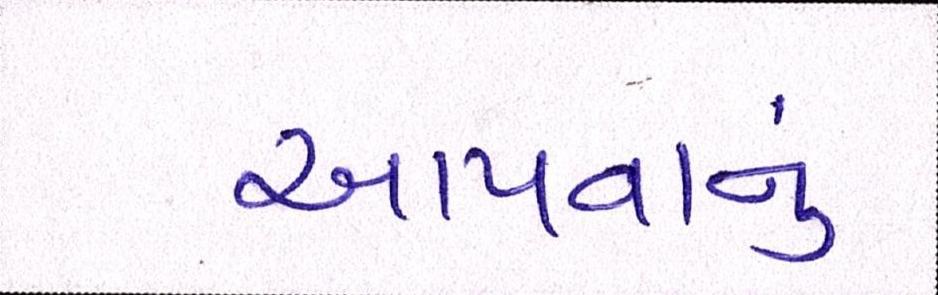 આપવાનું